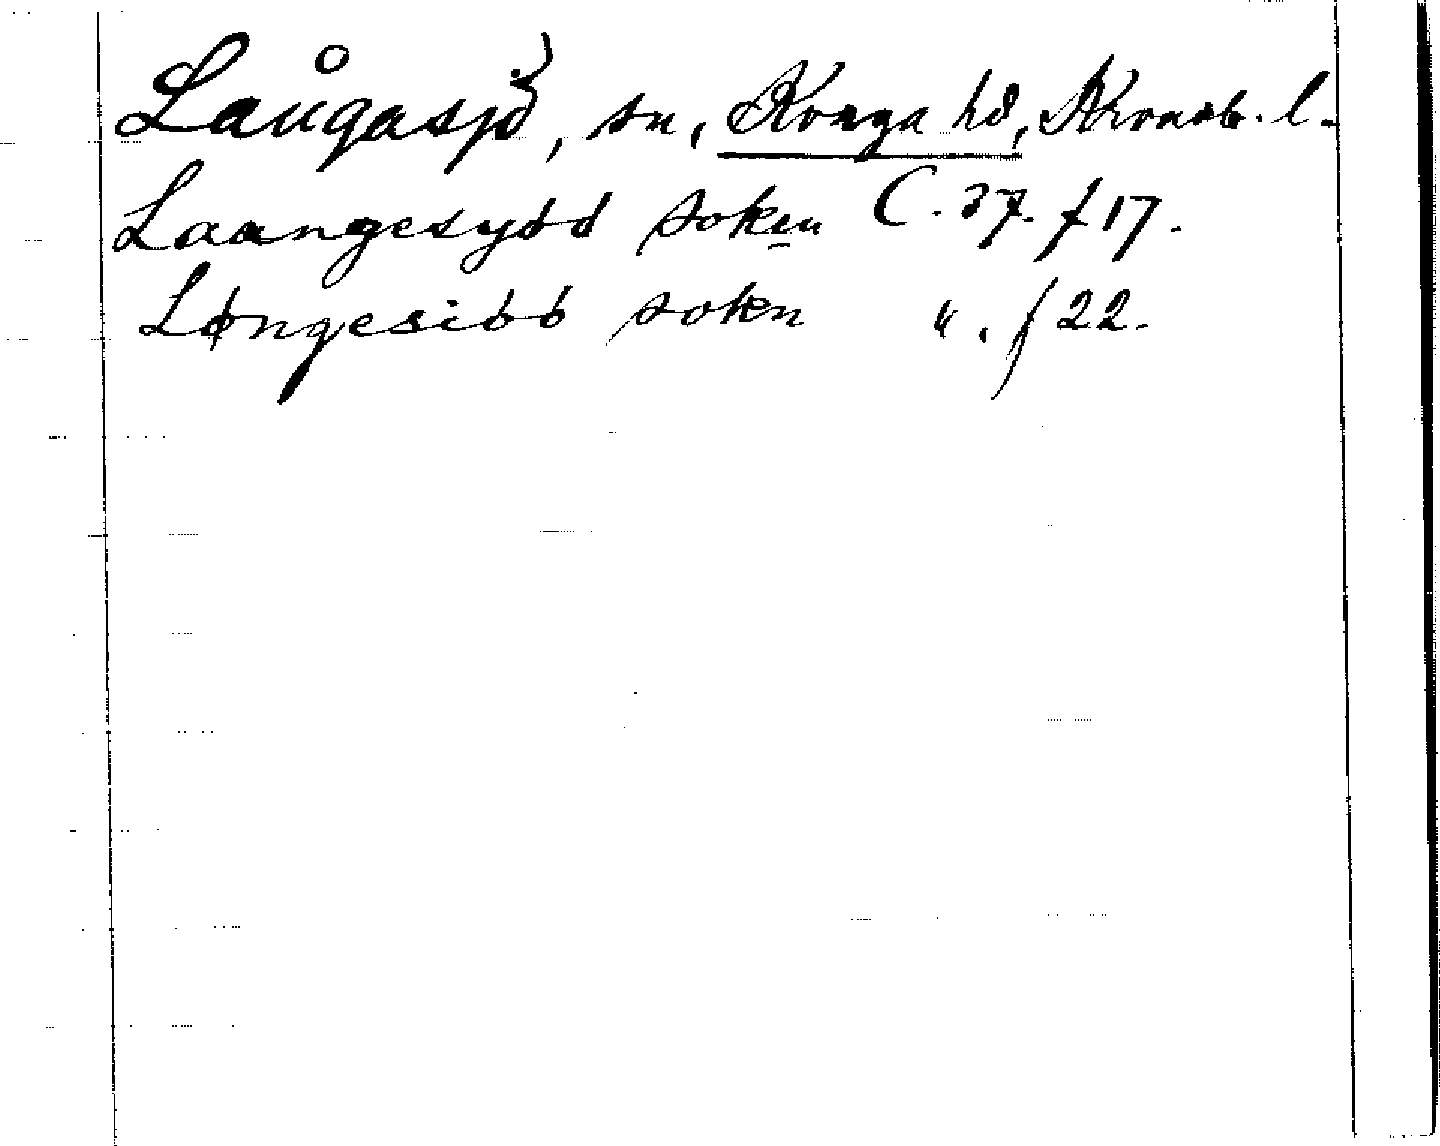 Långasjö, sn, Konga hd, Kronob. l.
Laangesyöö soken C. 37. f 17.
Løngesiöö sokn ". f 22.